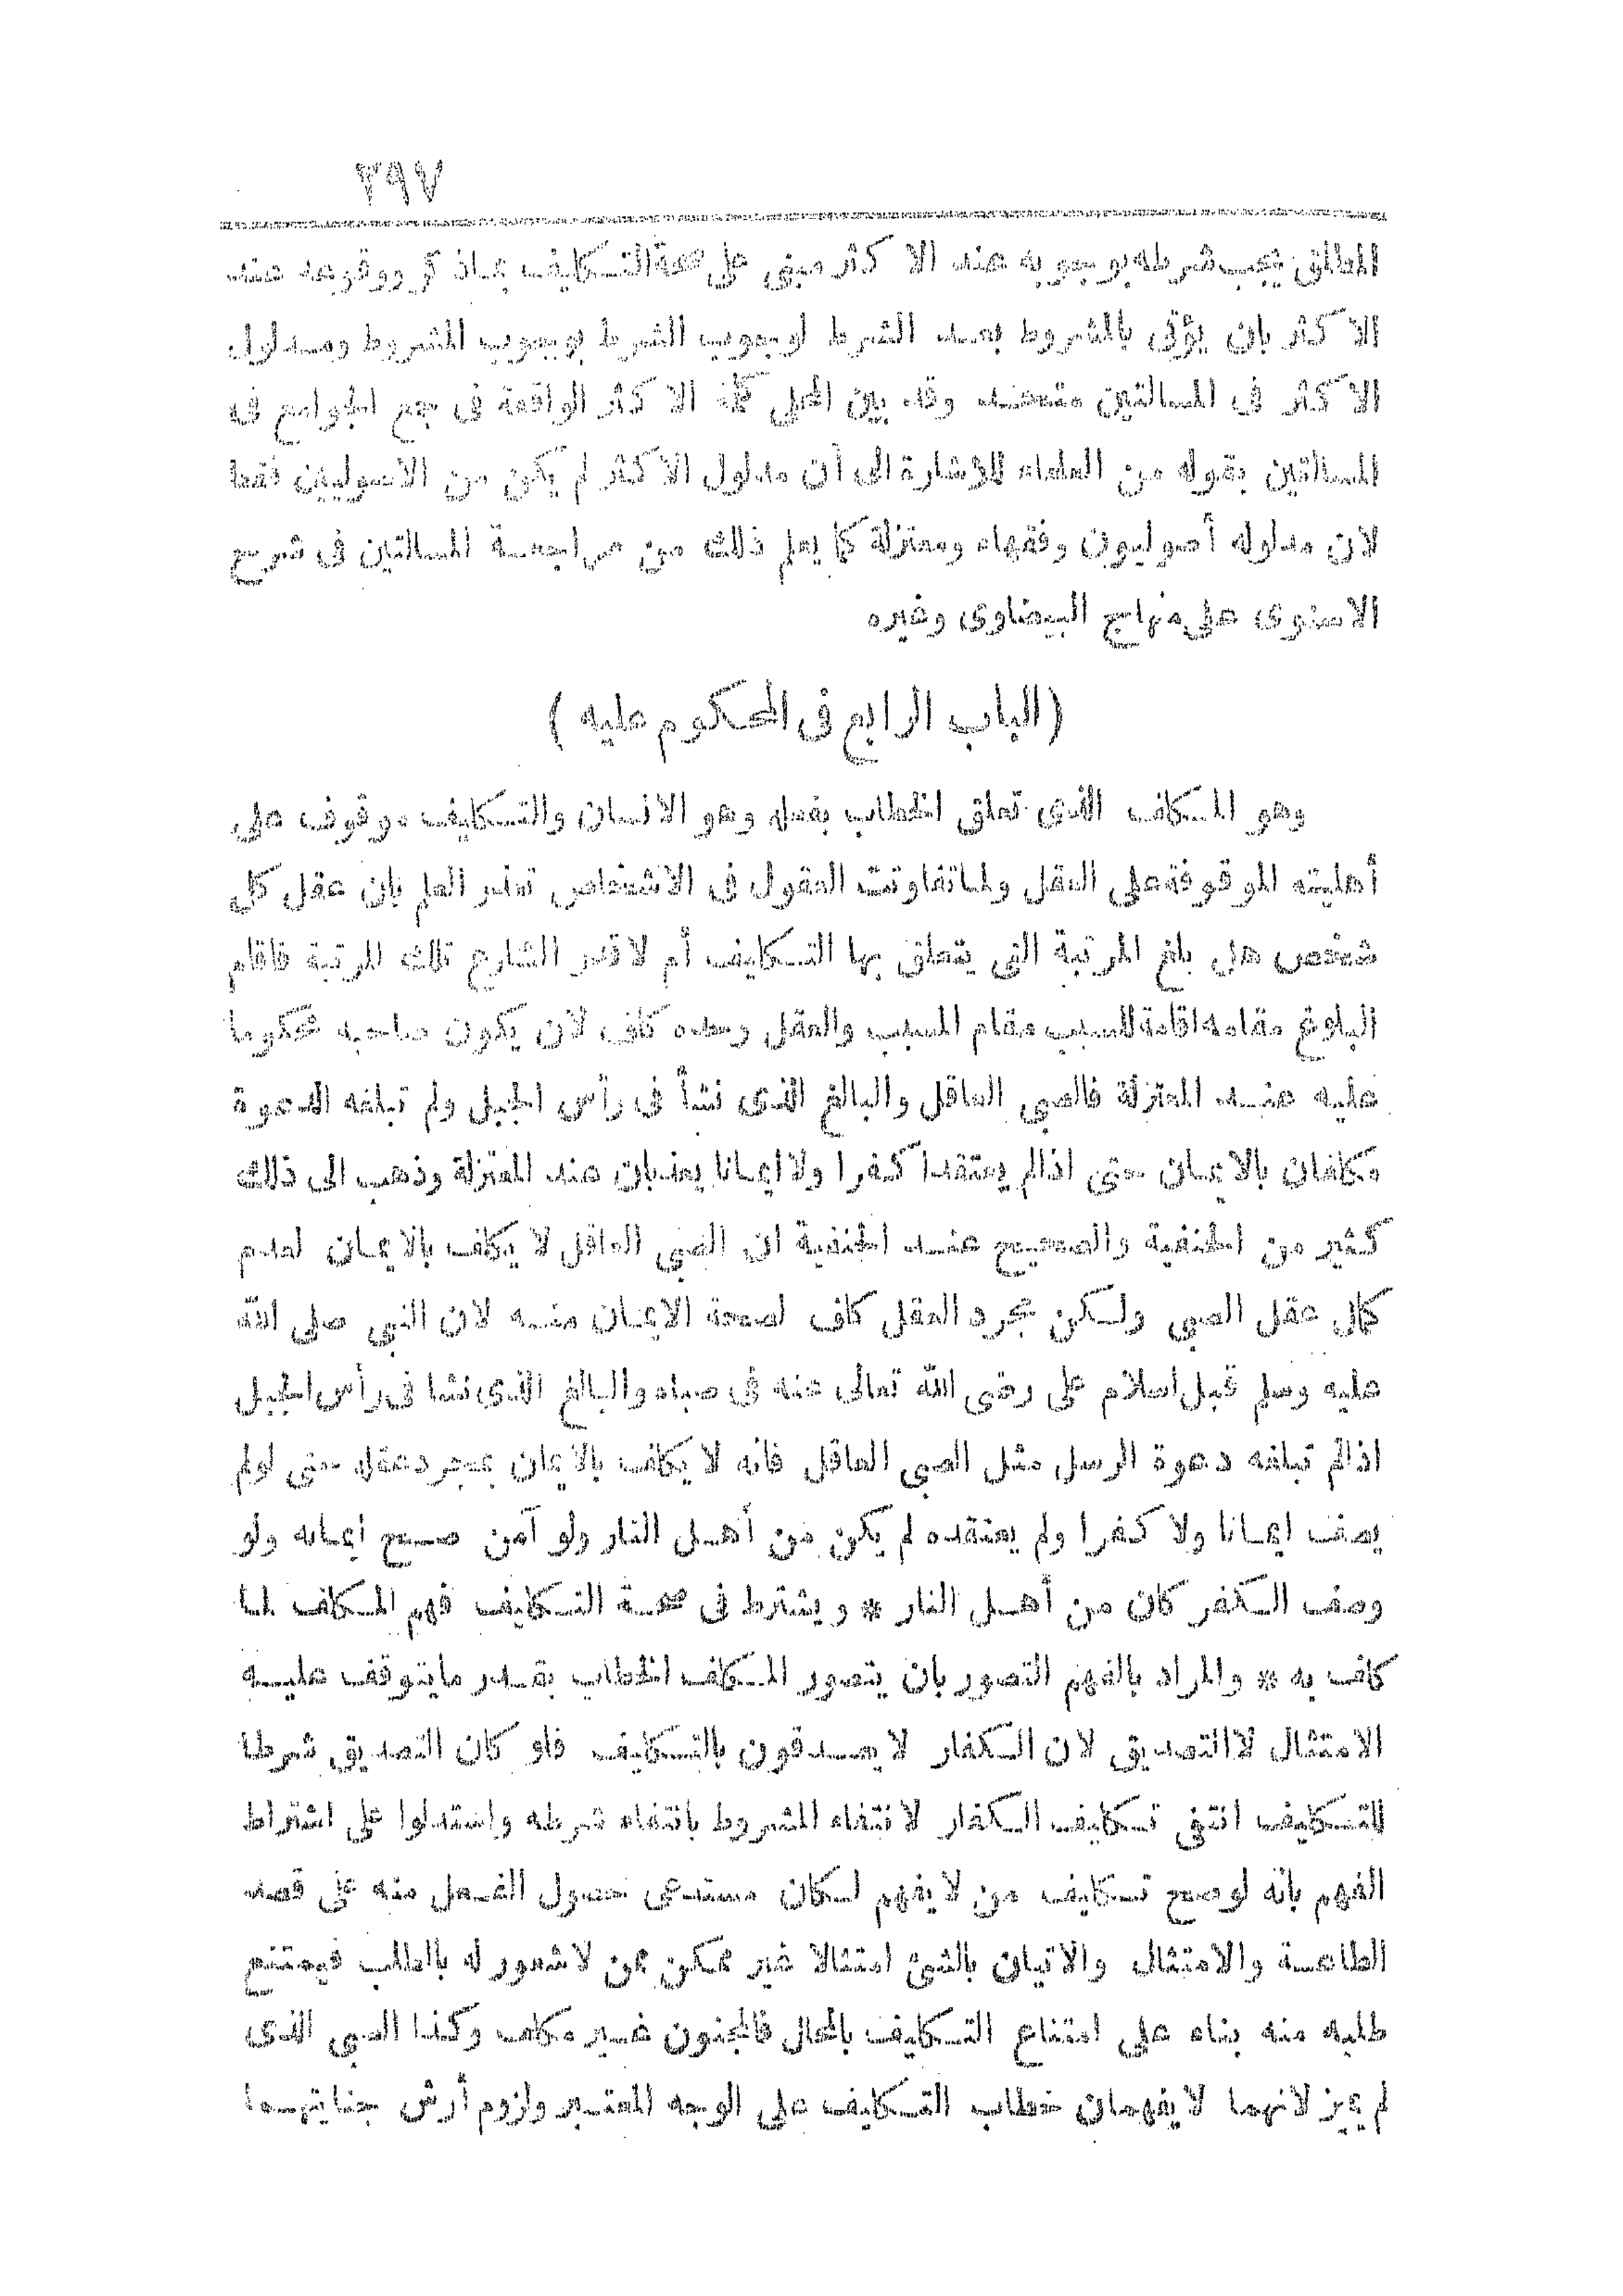 ٢٩٧
المطلق يجب شرطه بوجوبه عند الاكثر مبنى على صحة التكليف بماذكر ووقوعه عند
الاكثر بان يؤتى بالمشروط بعد الشرط لوجوب الشرط بوجوب المشروط ومدلول
الاكثر فى المسالتين متحد وقد بين المحلى كلمة الاكثر الواقعة فى جمع الجوامع فى
المسالتين بقوله من العلماء للاشارة الى أن مدلول الاكثر لم يكن من الاصوليين فقط
لان مدلوله أصوليون وفقهاء ومعتزلة كما يعلم ذلك من مراجعة المسالتين فى شرح
الاسنوى على منهاج البيضاوى وغيره
(الباب الرابع فى المحكوم عليه)
وهو المكلف الذى تعلق الخطاب بفعله وهو الانسان والتكليف موقوف على
أهليته الموقوفة على العقل ولما تفاوتت العقول فى الاشخاص تعذر العلم بان عقل كل
شخص هل بلغ المرتبة التى يتعلق بها التكليف أم لا قدر الشارع تلك المرتبة فاقام
البلوغ مقامه اقامة للسبب مقام المسبب والعقل وحده كاف لان يكون صاحبه محكوما
عليه عند المعتزلة فالصبى العاقل والبالغ الذى نشأ فى رأس الجبل ولم تبلغه الدعوة
مكلفان بالايمان حتى اذالم يعتقدا كفرا ولا ايمانا يعذبان عند المعتزلة وذهب الى ذلك
كثير من الحنفية والصحيح عند الحنفية ان الصبى العاقل لا يكلف بالايمان لعدم
كمال عقل الصبى ولكن مجرد العقل كاف لصحة الايمان منه لان النبى صلى الله
عليه وسلم قبل اسلام على رضى الله تعالى عنه فى صباه والبالغ الذى نشا فى رأس الجبل
اذالم تبلغه دعوة الرسل مثل الصبى العاقل فانه لا يكلف بالايمان بمجرد عقله حتى لولم
يصف ايمانا ولا كفرا ولم يعتقده لم يكن من أهل النار ولو آمن صح ايمانه ولو
وصف الكفر كان من أهل النار * ويشترط فى صحة التكليف فهم المكلف لما
كلف به * والمراد بالفهم التصور بان يتصور المكلف الخطاب بقدر مايتوقف عليه
الامتثال لا التصديق لان الكفار لا يصدقون بالتكليف فلو كان التصديق شرطا
للتكليف انتفى تكليف الكفار لانتفاء المشروط بانتفاء شرطه واستدلوا على اشتراط
الفهم بانه لوصح تكليف من لا يفهم لكان مستدعى حصول الفعل منه على قصد
الطاعة والامتثال والاتيان بالشئ امتثالا غير ممكن ممن لا شعور له بالطلب فيمتنع
طلبه منه بناء على امتناع التكليف بالمحال فالمجنون غير مكلف وكذا الصبى الذى
لم يميز لانهما لا يفهمان خطاب التكليف على الوجه المعتبر ولزوم أرش جنايتهما